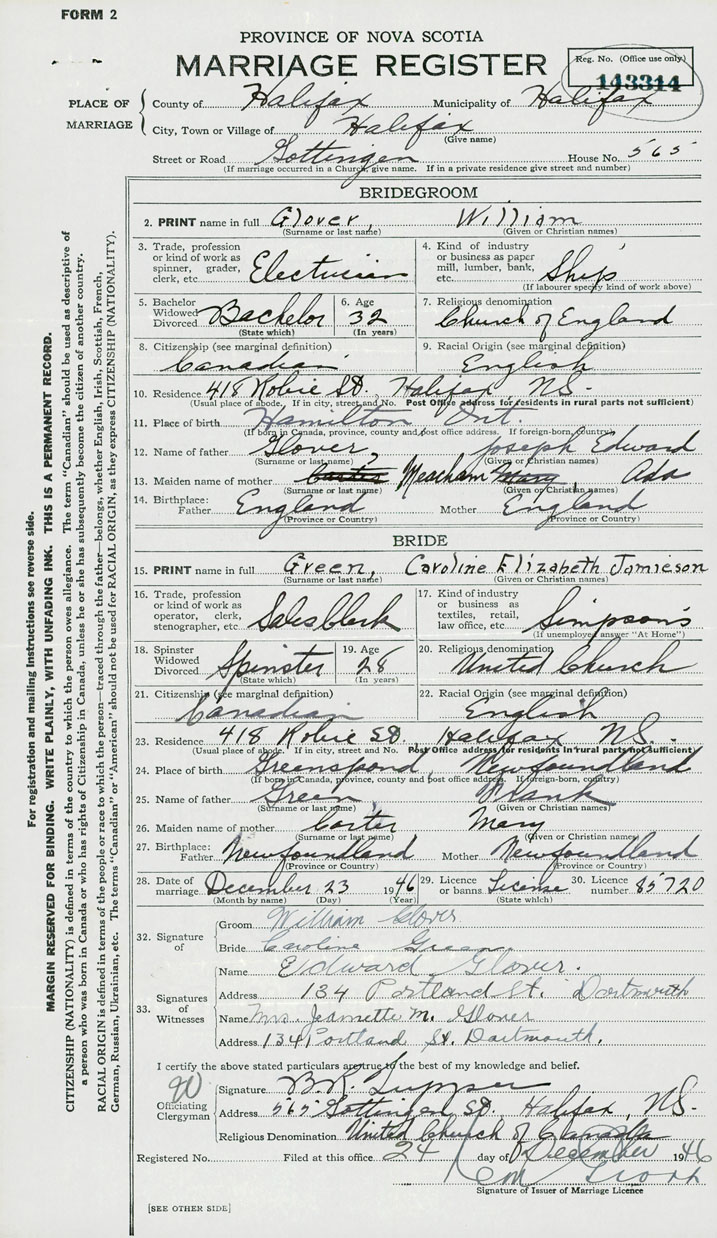 FORM 2
PROVINCE OF NOVA SCOTIA
MARRIAGE REGISTER
Reg. No. (Office use only)
143314
PLACE OF MARRIAGE
County of Halifax Municipality of Halifax
City, Town or Village of Halifax
(Give name)
Street or Road Gottingen House No. 565
(If marriage occurred in a Church, give name. If in a private residence give street and number)
BRIDEGROOM
2. PRINT name in full Glover, William
(Surname or last name) (Given or Christian names)
3. Trade, profession or kind of work as spinner, grader, clerk, etc. Electrician
4. Kind of industry or business as paper mill, lumber, bank, etc. Ship
(If labourer specify kind of work above)
5. Bachelor Widowed Divorced Bachelor
(State which)
6. Age 32
(In years)
7. Religious denomination
Church of England
8. Citizenship (see marginal definition)
Canadian
9. Racial Origin (see marginal definition)
English
10. Residence 418 Robie St. Halifax NS.
(Usual place of abode. If in city, street and No. Post Office address for residents in rural parts not sufficient)
11. Place of birth Hamilton Ont.
(If born in Canada, province, county and post office address. If foreign-born, country)
12. Name of father Glover, Joseph Edward
(Surname or last name) (Given or Christian names)
13. Maiden name of mother Carter Meacham Mary, Ada
(Surname or last name) (Given or Christian names)
14. Birthplace: Father England Mother England
(Province or Country) (Province or Country)
BRIDE
15. PRINT name in full Green, Caroline Elizabeth Jamieson
(Surname or last name) (Given or Christian names)
16. Trade, profession or kind of work as operator, clerk, stenographer, etc. Sales Clerk
17. Kind of industry or business as textiles, retail, law office, etc. Simpson's
(If unemployed answer "At Home")
18. Spinster Widowed Divorced Spinster
(State which)
19. Age 28
(In years)
20. Religious denomination
United Church
21. Citizenship (see marginal definition)
Canadian
22. Racial Origin (see marginal definition)
English
23. Residence 418 Robie St. Halifax NS.
(Usual place of abode. If in city, street and No. Post Office address for residents in rural parts not sufficient)
24. Place of birth Greenspond, Newfoundland
(If born in Canada, province, county and post office address. If foreign-born, country)
25. Name of father Green, Frank
(Surname or last name) (Given or Christian names)
26. Maiden name of mother Carter Mary
(Surname or last name) (Given or Christian names)
27. Birthplace: Father Newfoundland Mother Newfoundland
(Province or Country) (Province or Country)
28. Date of marriage December 23 1946
(Month by name) (Day) (Year)
29. Licence or banns License
(State which)
30. Licence number 85720
32. Signature of
Groom William Glover
Bride Caroline Green
33. Signatures of Witnesses
Name Edward Glover.
Address 134 Portland St. Dartmouth
Name Mrs Jeannette M. Glover
Address 134 Portland St. Dartmouth.
I certify the above stated particulars are true to the best of my knowledge and belief.
W
Officiating Clergyman
Signature B.R. Tupper
Address 565 Gottingen St. Halifax, NS.
Religious Denomination United Church of Canada
Registered No. Filed at this office 24 day of December 1946
Signature of Issuer of Marriage Licence
[SEE OTHER SIDE]
For registration and mailing instructions see reverse side.
MARGIN RESERVED FOR BINDING. WRITE PLAINLY, WITH UNFADING INK. THIS IS A PERMANENT RECORD.
CITIZENSHIP (NATIONALITY) is defined in terms of the country to which the person owes allegiance. The term "Canadian" should be used as descriptive of
a person who was born in Canada or who has rights of Citizenship in Canada, unless he or she has subsequently become the citizen of another country.
RACIAL ORIGIN is defined in terms of the people or race to which the person—traced through the father—belongs, whether English, Irish, Scottish, French,
German, Russian, Ukrainian, etc. The terms "Canadian" or "American" should not be used for RACIAL ORIGIN, as they express CITIZENSHIP (NATIONALITY).